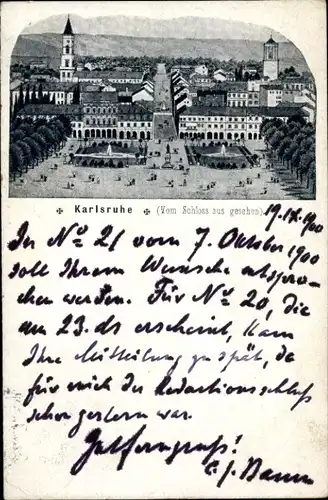 Karlsruhe (Vom Schloss aus gesehen)
19.IX.1900
In No 21 vom 7. Oktober 1900
soll Ihrem Wunsche entspro-
chen werden. Für No 20, die
am 23. ds erscheint, kam
Ihre Mitteilung zu spät, da
für mich der Redactionsschluß
schon gestern war.
Gutferngruß!